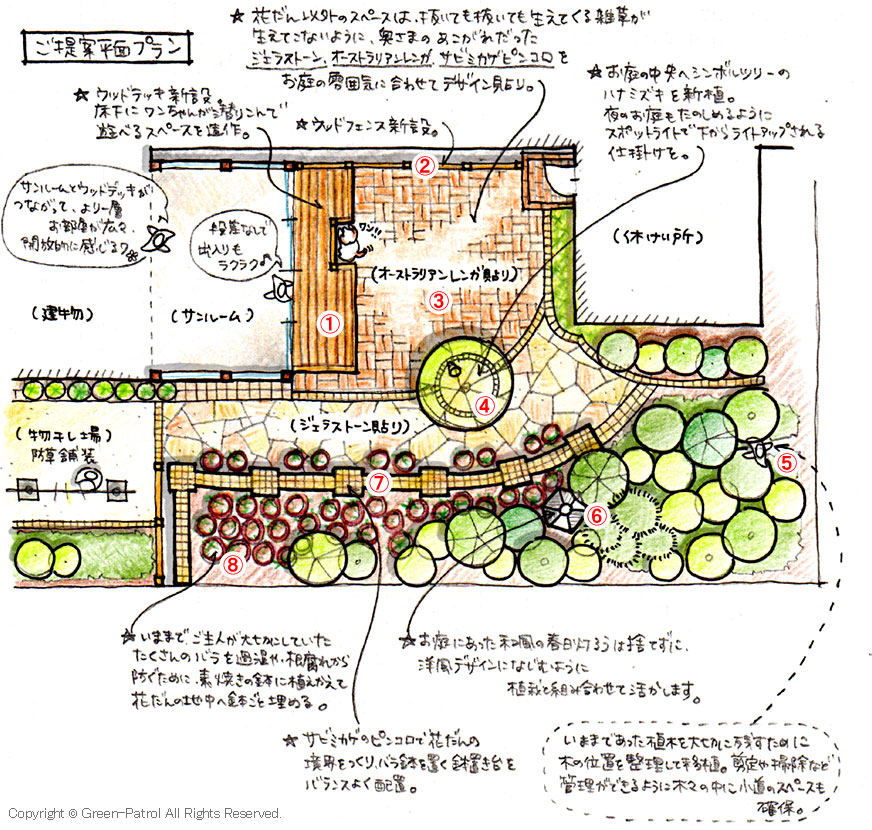 ご提案平面プラン
★花だん以外のスペースは、抜いても抜いても生えてくる雑草が
生えてこないように、奥さまのあこがれだった
ジェラストーン、オーストラリアンレンガ、サビミカゲピンコロを
お庭の雰囲気に合わせてデザイン貼り。
★ウッドデッキ新設。
床下にワンちゃんが潜りこんで
遊べるスペースを造作。
★ウッドフェンス新設。
★お庭の中央へシンボルツリーの
ハナミズキを新植。
夜のお庭もたのしめるように
スポットライトで下からライトアップされる
仕掛けを。
サンルームとウッドデッキが
つながって、より一層
お部屋が広々、
開放的に感じる
段差なしで
出入りも
ラクラク♪
ワン!!
②
(休けい所)
(オーストラリアンレンガ貼り)
③
(建物)
(サンルーム)
①
④
(ジェラストーン貼り)
(物干し場)
防草舗装
⑤
⑦
⑥
⑧
★いままでご主人が大切にしていた
たくさんのバラを過湿や根腐れから
防ぐために、素焼きの鉢に植えかえて
花だんの地中へ鉢ごと埋める。
★お庭にあった和風の春日灯ろうは捨てずに、
洋風デザインになじむように
植栽と組み合わせて活かします。
★サビミカゲのピンコロで花だんの
境界をつくり、バラ鉢を置く鉢置き台を
バランスよく配置。
いままであった植木を大切に残すために
木の位置を整理して移植。剪定や掃除など
管理ができるように木々の中に小道のスペースも
確保。
Copyright © Green-Patrol All Rights Reserved.